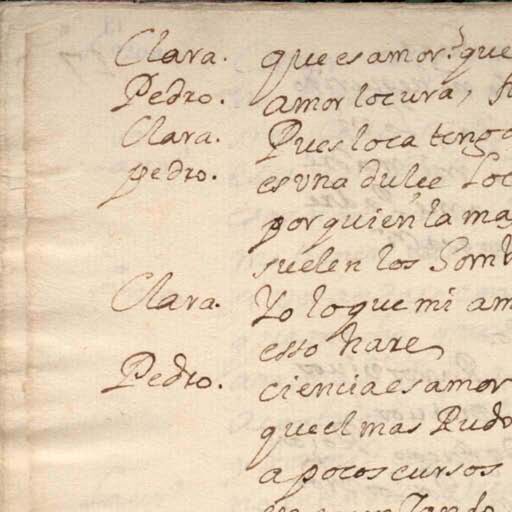 Clara. que es amor? que
Pedro. amor locura,
Clara. Pues loca tengo
pedro. es vna dulce loc
por quien la ma
suelen los Somb
Clara. Yo lo que mi am
esso hare
Pedro. ciencia es amor
que el mas Rudo
a pocos cursos